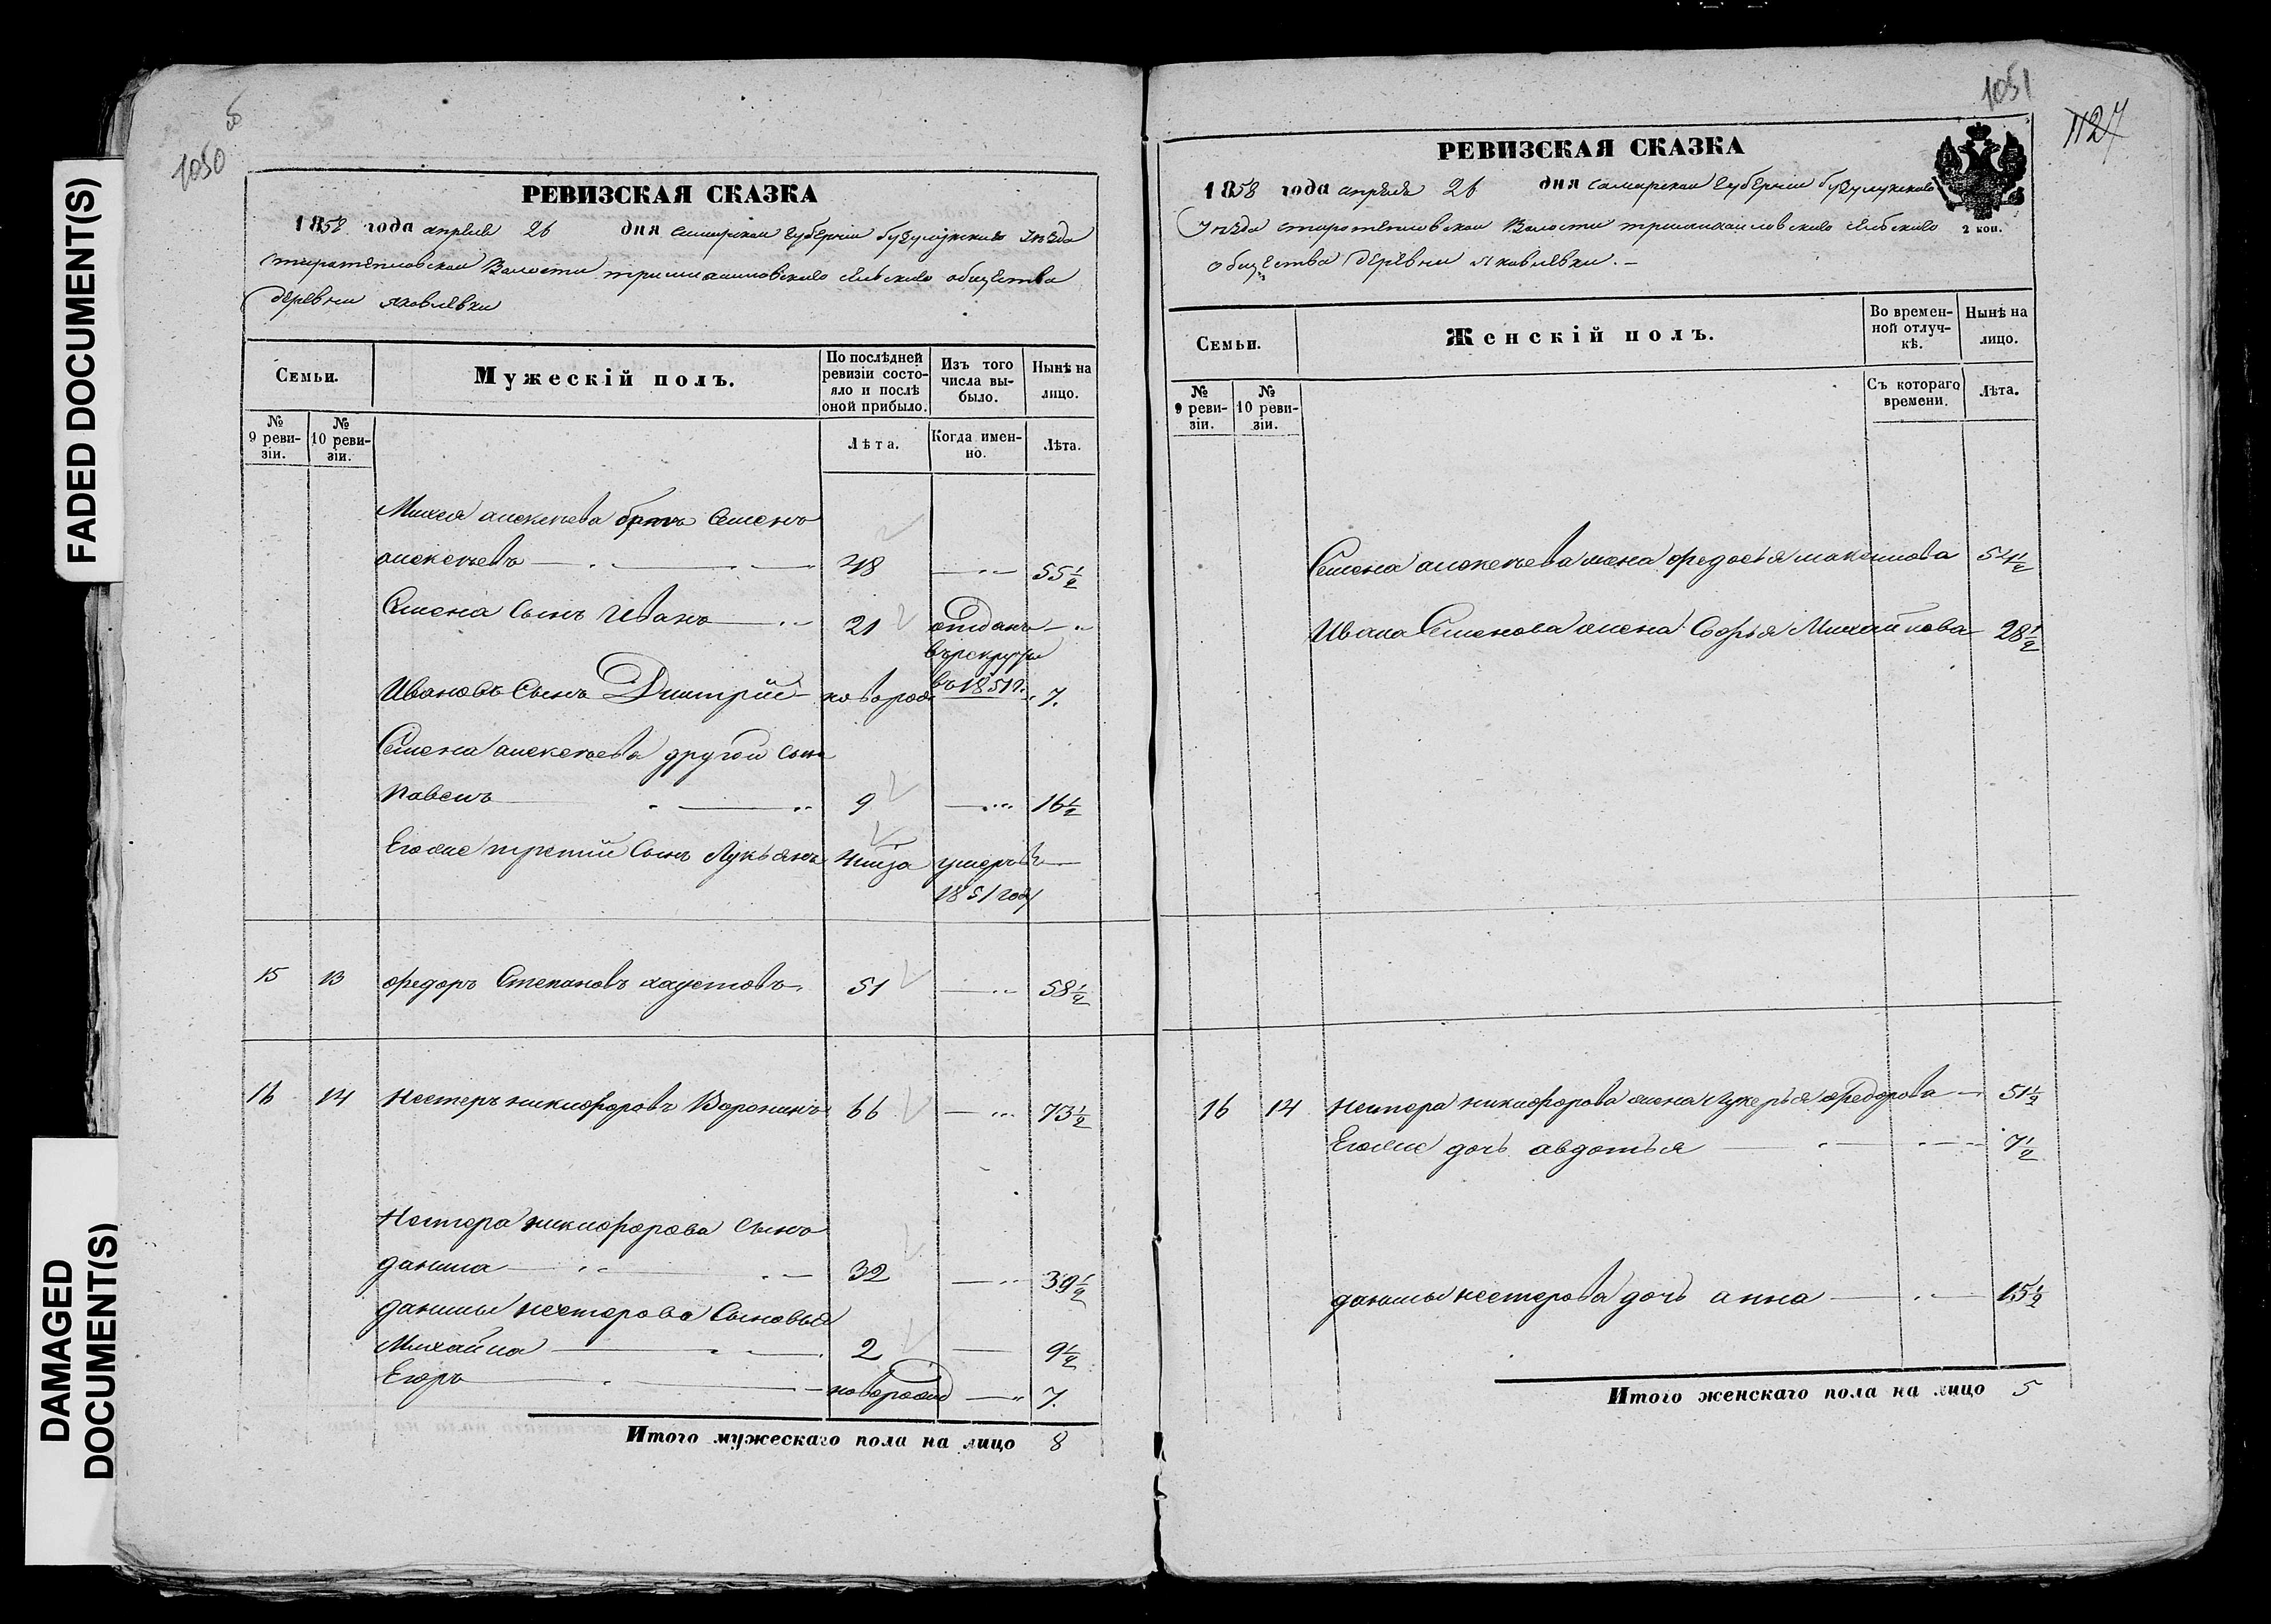 FADED DOCUMENT(S)
DAMAGED
DOCUMENT(S)
1050
РЕВИЗСКАЯ СКАЗКА
1858 года апреля 26 дня самарской губернии бузулукскаго уезда
деревни яковлевки
Семьи.
Мужескій полъ.
По послѣдней
ревизіи состо-
яло и послѣ
оной прибыло.
Изъ того
числа вы-
было.
Нынѣ на
лицо.
№
9 реви-
зіи.
№
10 реви-
зіи.
Лѣта.
Когда имен-
но.
Лѣта.
алексеева братъ Семенъ
алексеевъ 48 55½
Семена Сынъ Иванъ 21 отданъ
в рекруты
въ 1851 г.
Ивановъ Сынъ Дмитрій новорож 7.
Семена алексеева другой сынъ
Павелъ 9 16½
Егоже третий Сынъ Лукьянъ умеръ въ
1851 году
15 13 федоръ Степановъ хаустовъ 51 58½
16 14 Нестеръ никифоровъ Воронинъ 66 73½
Нестера никифорова Сынъ
данила 32 39½
данилы нестерова Сыновья
Михайла 2 9½
Егоръ новорожд 7.
Итого мужескаго пола на лицо 8
1051
1127
РЕВИЗСКАЯ СКАЗКА
1858 года апреля 26 дня самарской губернии бузулукскаго
общества деревни яковлевки.
2 коп.
Семьи.
Женскій полъ.
Во времен-
ной отлуч-
кѣ.
Нынѣ на
лицо.
№
9 реви-
зіи.
№
10 реви-
зіи.
Съ котораго
времени.
Лѣта.
Семена алексеева жена федосья максимова 54½
Ивана Семенова жена Софья Михайлова 28½
16 14 Нестера никифорова жена лукерья федорова 51½
Егоже дочь авдотья 7½
данилы нестерова дочь анна 15½
Итого женскаго пола на лицо 5